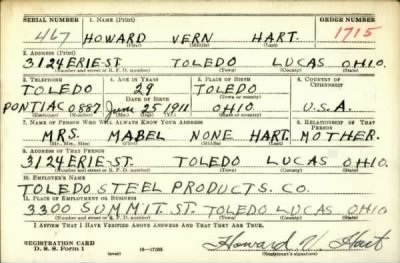 SERIAL NUMBER 1. NAME (Print) ORDER NUMBER
467 HOWARD VERN HART. 1715
(First) (Middle) (Last)
2. ADDRESS (Print)
3124 ERIE ST. TOLEDO LUCAS OHIO.
(Number and street or R. F. D. number) (Town) (County) (State)
3. TELEPHONE 4. AGE IN YEARS 5. PLACE OF BIRTH 6. COUNTRY OF CITIZENSHIP
TOLEDO 29 TOLEDO
DATE OF BIRTH (Town or county)
PONTIAC 0887 June 25 1911 OHIO. U.S.A.
(Mo.) (Day) (Yr.) (State or country)
7. NAME OF PERSON WHO WILL ALWAYS KNOW YOUR ADDRESS 8. RELATIONSHIP OF THAT PERSON
MRS. MABEL NONE HART. MOTHER.
(Mr., Mrs., Miss) (First) (Middle) (Last)
9. ADDRESS OF THAT PERSON
3124 ERIE ST. TOLEDO LUCAS OHIO.
(Number and street or R. F. D. number) (Town) (County) (State)
10. EMPLOYER'S NAME
TOLEDO STEEL PRODUCTS. CO.
11. PLACE OF EMPLOYMENT OR BUSINESS
3300 SUMMIT. ST. TOLEDO LUCAS OHIO
(Number and street or R. F. D. number) (Town) (County) (State)
I AFFIRM THAT I HAVE VERIFIED ABOVE ANSWERS AND THAT THEY ARE TRUE.
REGISTRATION CARD
D. S. S. Form 1 16—17105 Howard V. Hart
(Registrant's signature)